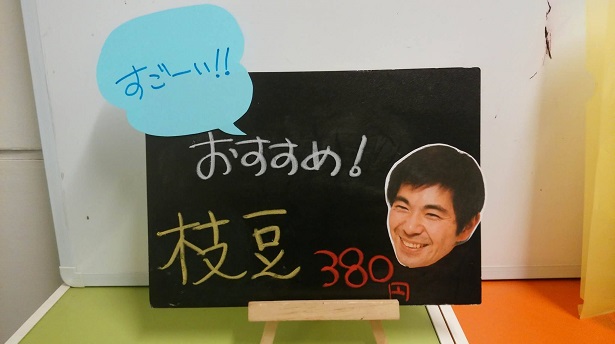 すごーい!!
おすすめ!
枝豆 380円